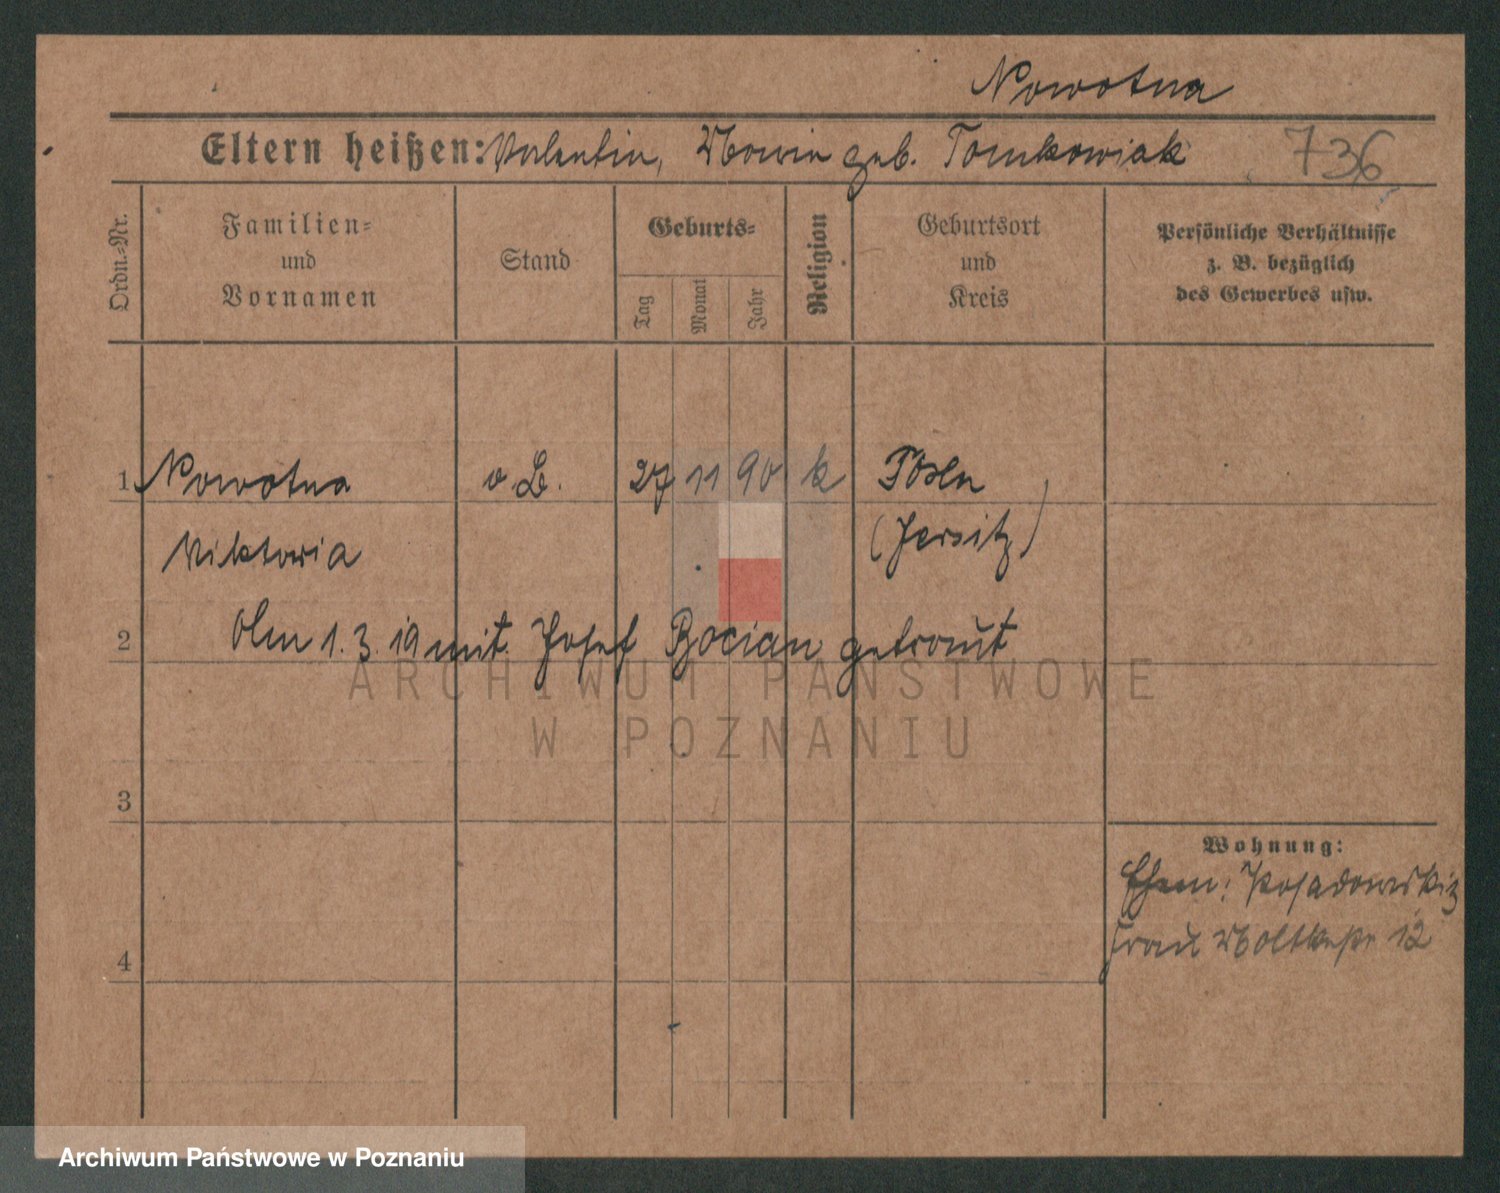 Nowotna
Eltern heißen: Valentin, Maria geb. Tomkowiak 736
Ordn.-Nr.
Familien-
und
Vornamen
Stand
Geburts-
Tag
Monat
Jahr
Religion
Geburtsort
und
Kreis
Persönliche Verhältnisse
z. B. bezüglich
des Gewerbes usw.
1 Nowotna o.B. 27 11 90 k Posen
Viktoria (Jersitz)
2 Am 1.3.19 mit Josef Bocian getraut
ARCHIWUM PAŃSTWOWE
W POZNANIU
3
Wohnung:
Ehem: Posadowskiz
4 Frau Moltkestr 12
Archiwum Państwowe w Poznaniu